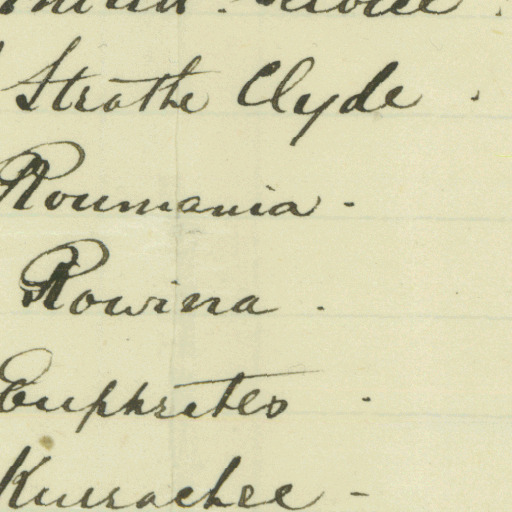 Strathe Clyde .
Roumania -
Rowina .
Euphrites .
Kurrachee -